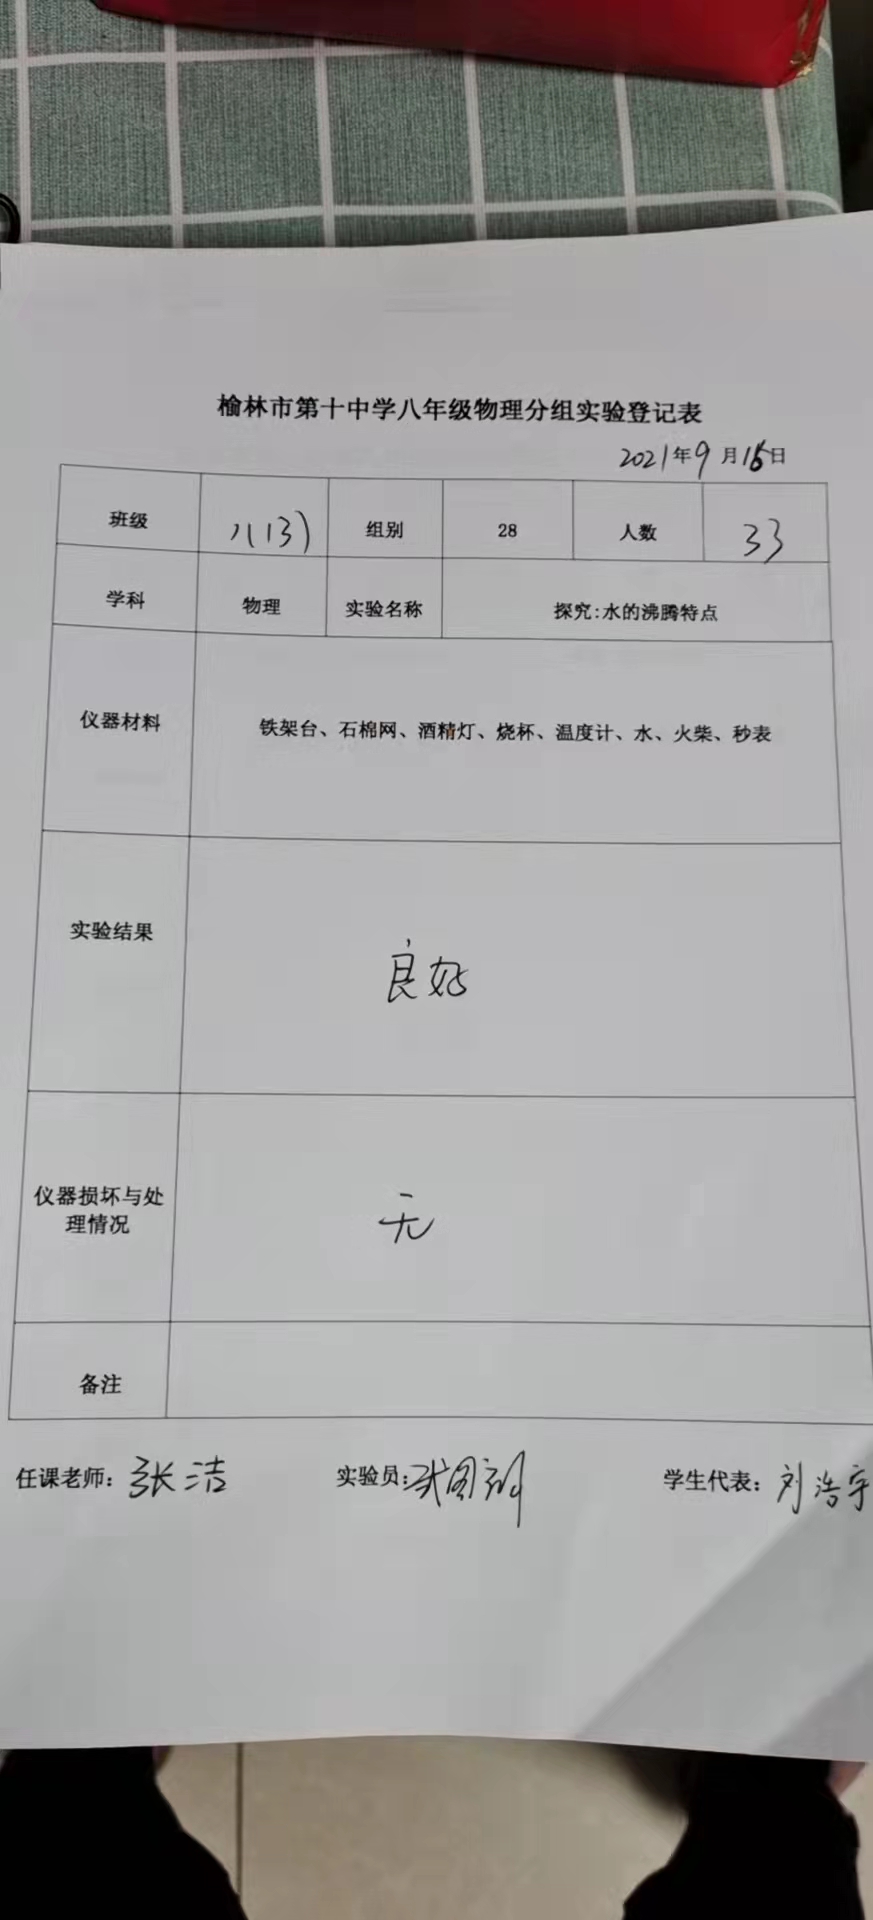 榆林市第十中学八年级物理分组实验登记表
2021年9月16日
班级 八(13) 组别 28 人数 33
学科 物理 实验名称 探究:水的沸腾特点
仪器材料 铁架台、石棉网、酒精灯、烧杯、温度计、水、火柴、秒表
实验结果 良好
仪器损坏与处
理情况 无
备注
任课老师: 张洁 实验员: 学生代表: 刘浩宇